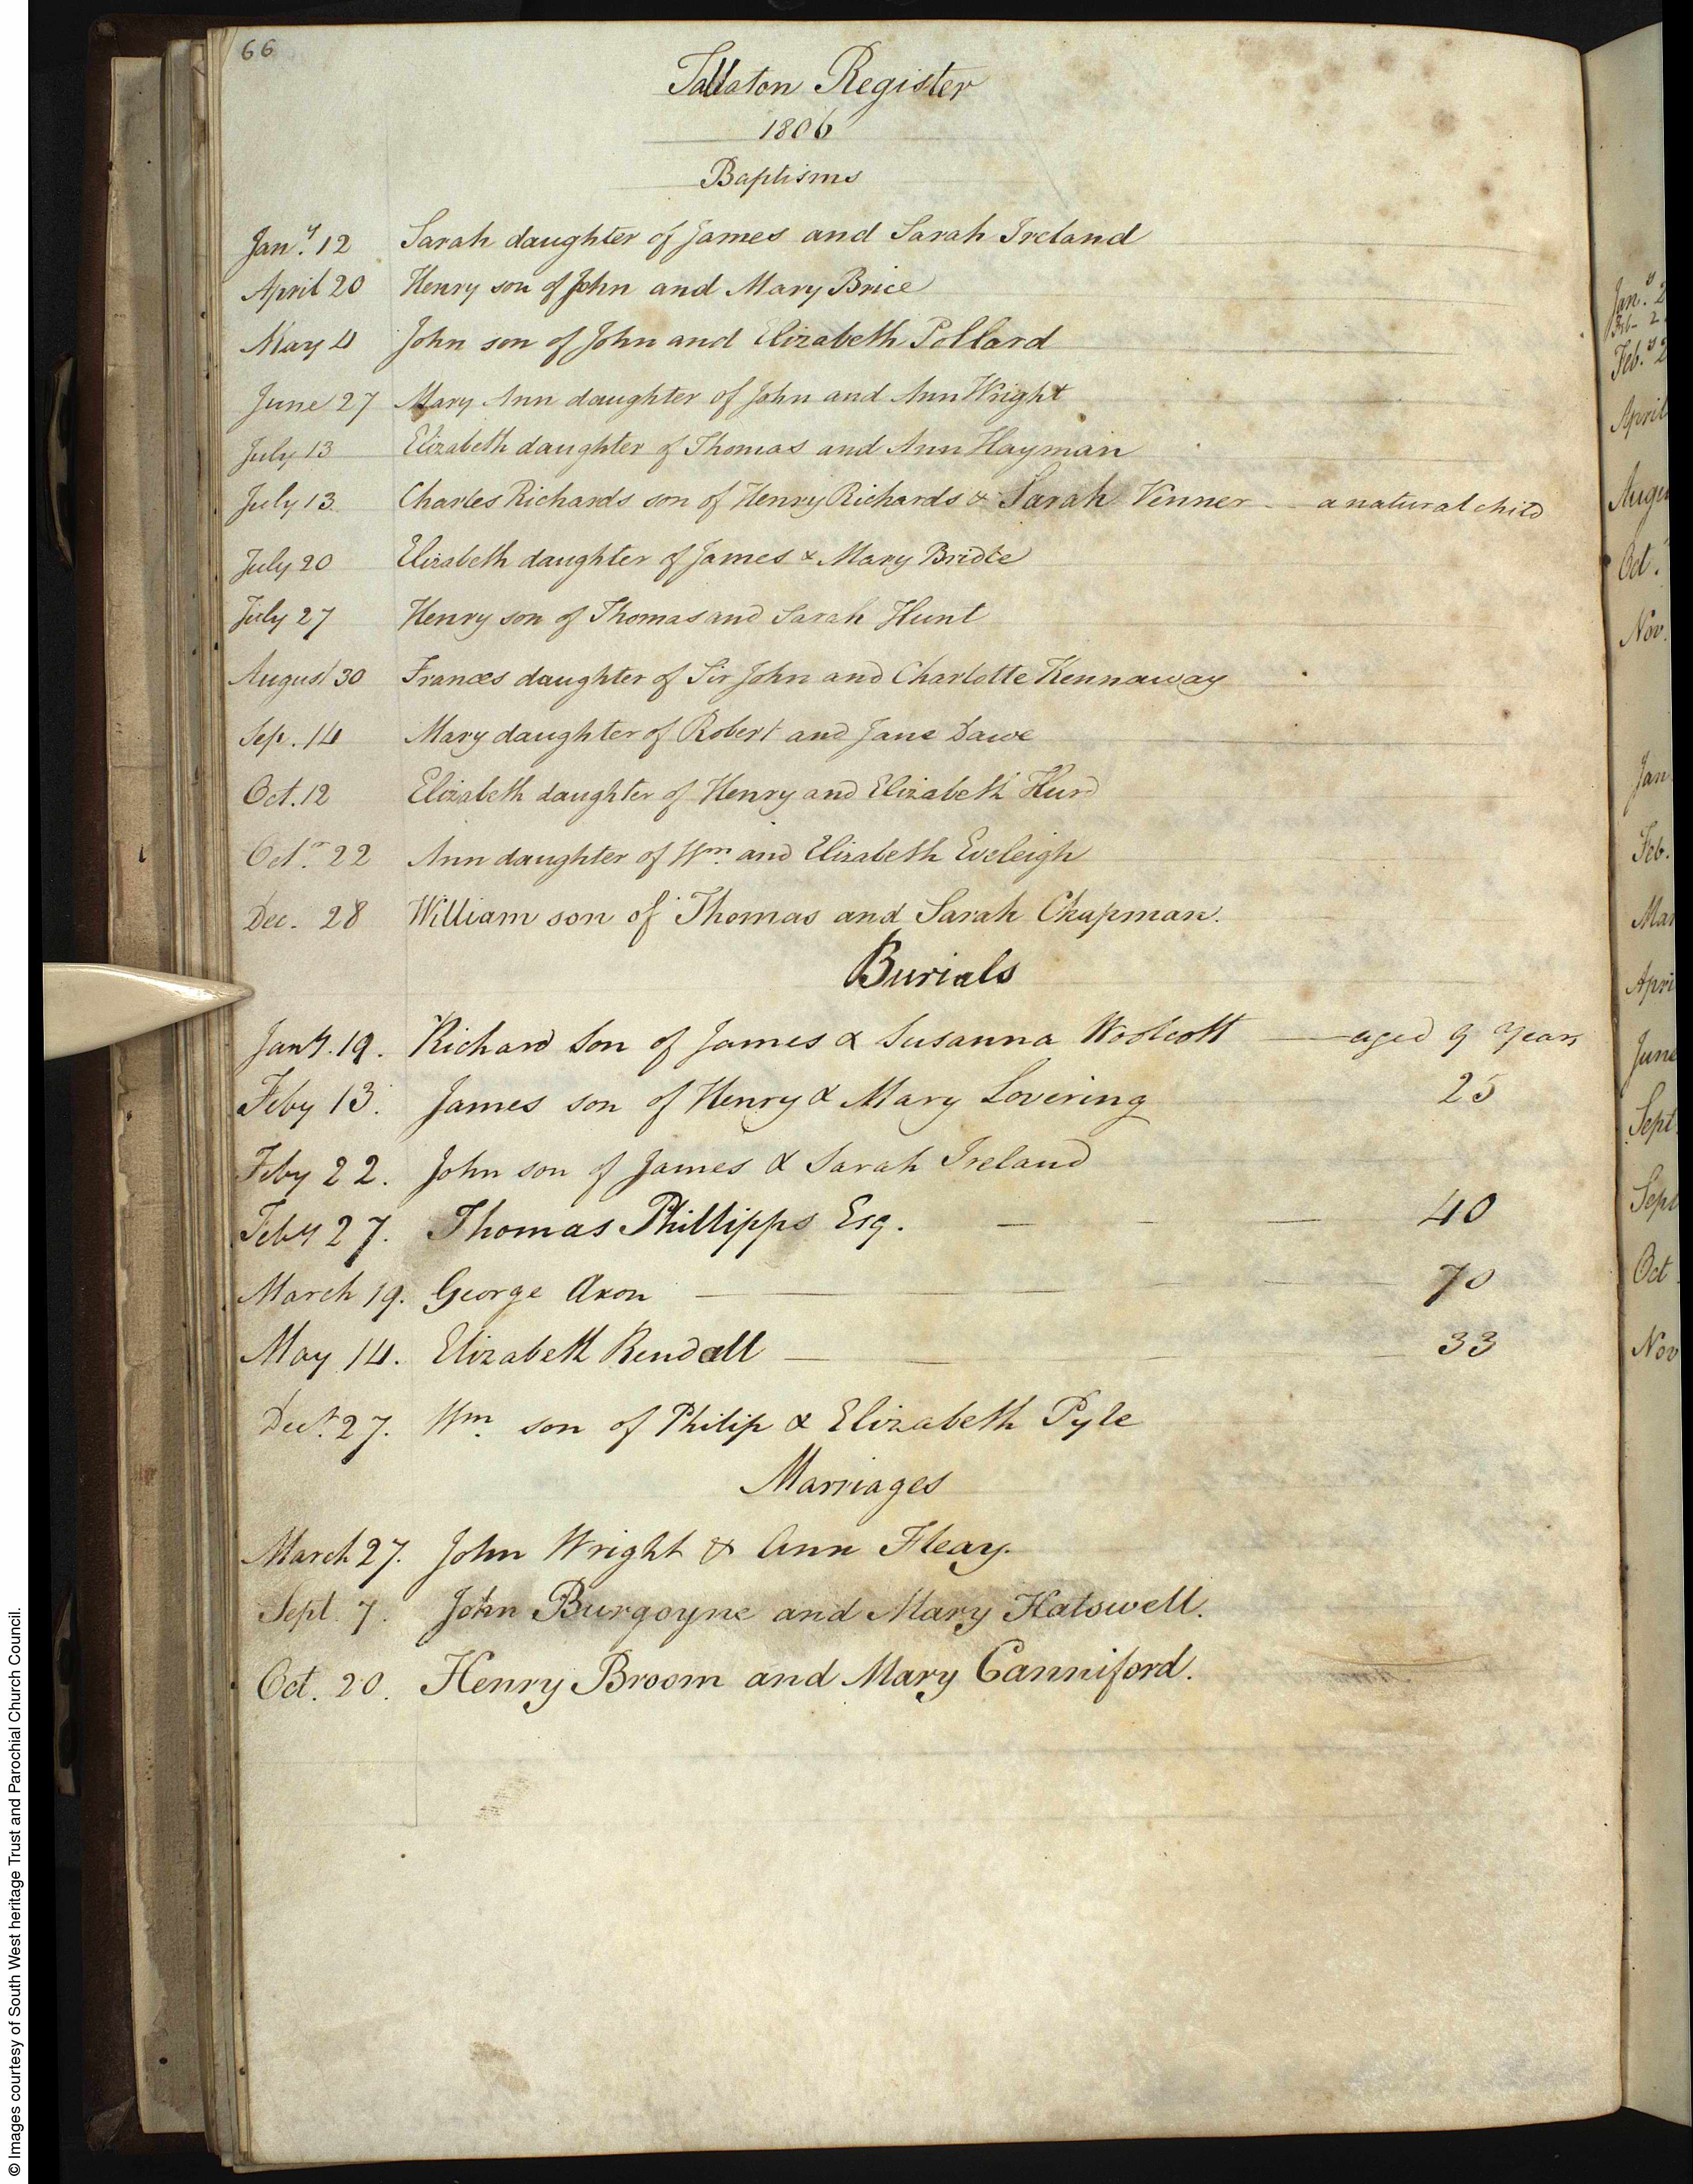 66
Tallaton Register
1806
Baptisms
Jan.y 12 Sarah daughter of James and Sarah Ireland
April 20 Henry son of John and Mary Brice
May 4 John son of John and Elizabeth Pollard
June 27 Mary Ann daughter of John and Ann Wright
July 13 Elizabeth daughter of Thomas and Ann Hayman
July 13 Charles Richards son of Henry Richards & Sarah Venner - - a natural child
July 20 Elizabeth daughter of James & Mary Bridle
July 27 Henry son of Thomas and Sarah Hunt
August 30 Frances daughter of Sir John and Charlotte Kennaway
Sep. 14 Mary daughter of Robert and Jane Dawe
Oct. 12 Elizabeth daughter of Henry and Elizabeth Hurd
Oct.r 22 Ann daughter of Wm. and Elizabeth Eveleigh
Dec. 28 William son of Thomas and Sarah Chapman.
Burials
Jany. 19. Richard Son of James & Susanna Woolcott — aged 9 Years
Feby 13. James son of Henry & Mary Lovering 25
Feby 22. John son of James & Sarah Ireland
Feby 27. Thomas Phillipps Esq. — — — 40
March 19. George Axon — — — 70
May 14. Elizabeth Rendall — — — 33
Decr. 27. Wm. son of Philip & Elizabeth Pyle
Marriages
March 27. John Wright & Ann Fleay.
Sept. 7. John Burgoyne and Mary Halswell.
Oct. 20. Henry Broom and Mary Canniford.
Jan.y 2
Feb. 2
Feb.y 2
April
Augu
Oct.
Nov.
Jan
Feb.
Mar
Apri
June
Sept
Sept
Oct
Nov
© Images courtesy of South West heritage Trust and Parochial Church Council.